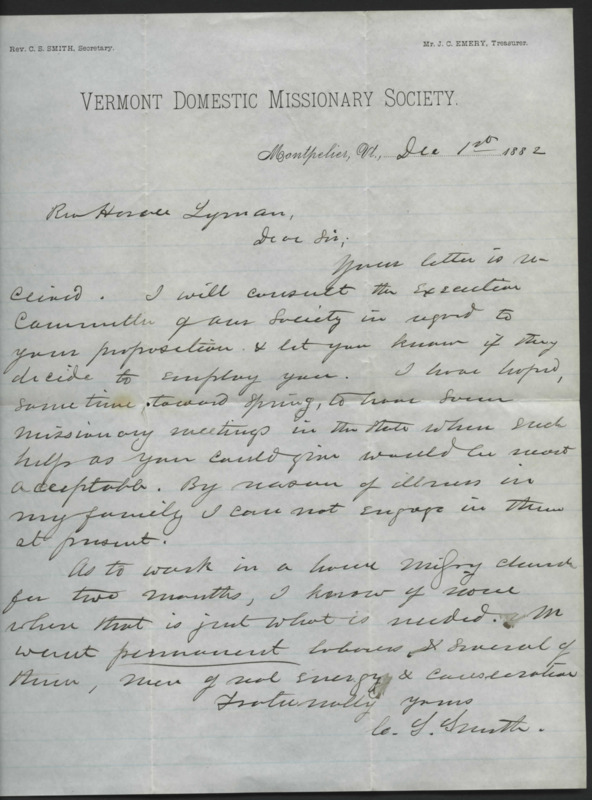 Rev. C. S. SMITH, Secretary.
Mr. J. C. EMERY, Treasurer.
VERMONT DOMESTIC MISSIONARY SOCIETY.
Montpelier, Vt., Dec 1st 1882
Rev Horace Lyman,
Dear Sir;
Your letter is re-
ceived. I will consult the Executive
Committee of our Society in regard to
your proposition & let you know if they
decide to employ you. I have hoped,
some time, toward spring, to have some
missionary meetings in the state when such
help as you could give would be most
acceptable. By reason of illness in
my family I can not engage in them
at present.
As to work in a home missry church
for two months, I know of none
where that is just what is needed. We
want permanent laborers & several of
them, men of real energy & consecration
Fraternally yours
C. S. Smith.